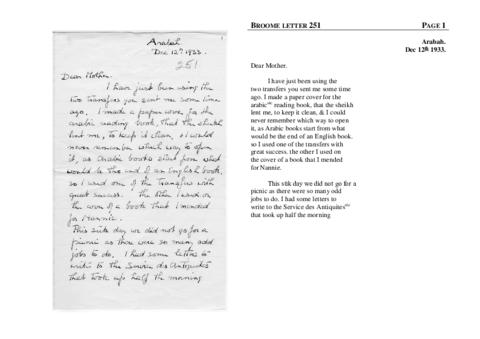 Arabah
Dec 12th 1933.
251
Dear Mother.
I have just been using the
two transfers you sent me some time
ago. I made a paper cover for the
arabic reading book, that the sheikh
lent me, to keep it clean, & I could
never remember which way to open
it, as Arabic books start from what
would be the end of an English book.
so I used one of the transfers with
great success. the other I used on
the cover of a book that I mended
for Nannie.
This sixth day we did not go for a
picnic as there were so many odd
jobs to do. I had some letters to
write to the Service des Antiquites
that took up half the morning
BROOME LETTER 251
PAGE 1
Arabah.
Dec 12th 1933.
Dear Mother.
I have just been using the
two transfers you sent me some time
ago. I made a paper cover for the
arabic reading book, that the sheikh
lent me, to keep it clean, & I could
never remember which way to open
it, as Arabic books start from what
would be the end of an English book.
so I used one of the transfers with
great success. the other I used on
the cover of a book that I mended
for Nannie.
This xith day we did not go for a
picnic as there were so many odd
jobs to do. I had some letters to
write to the Service des Antiquites
that took up half the morning